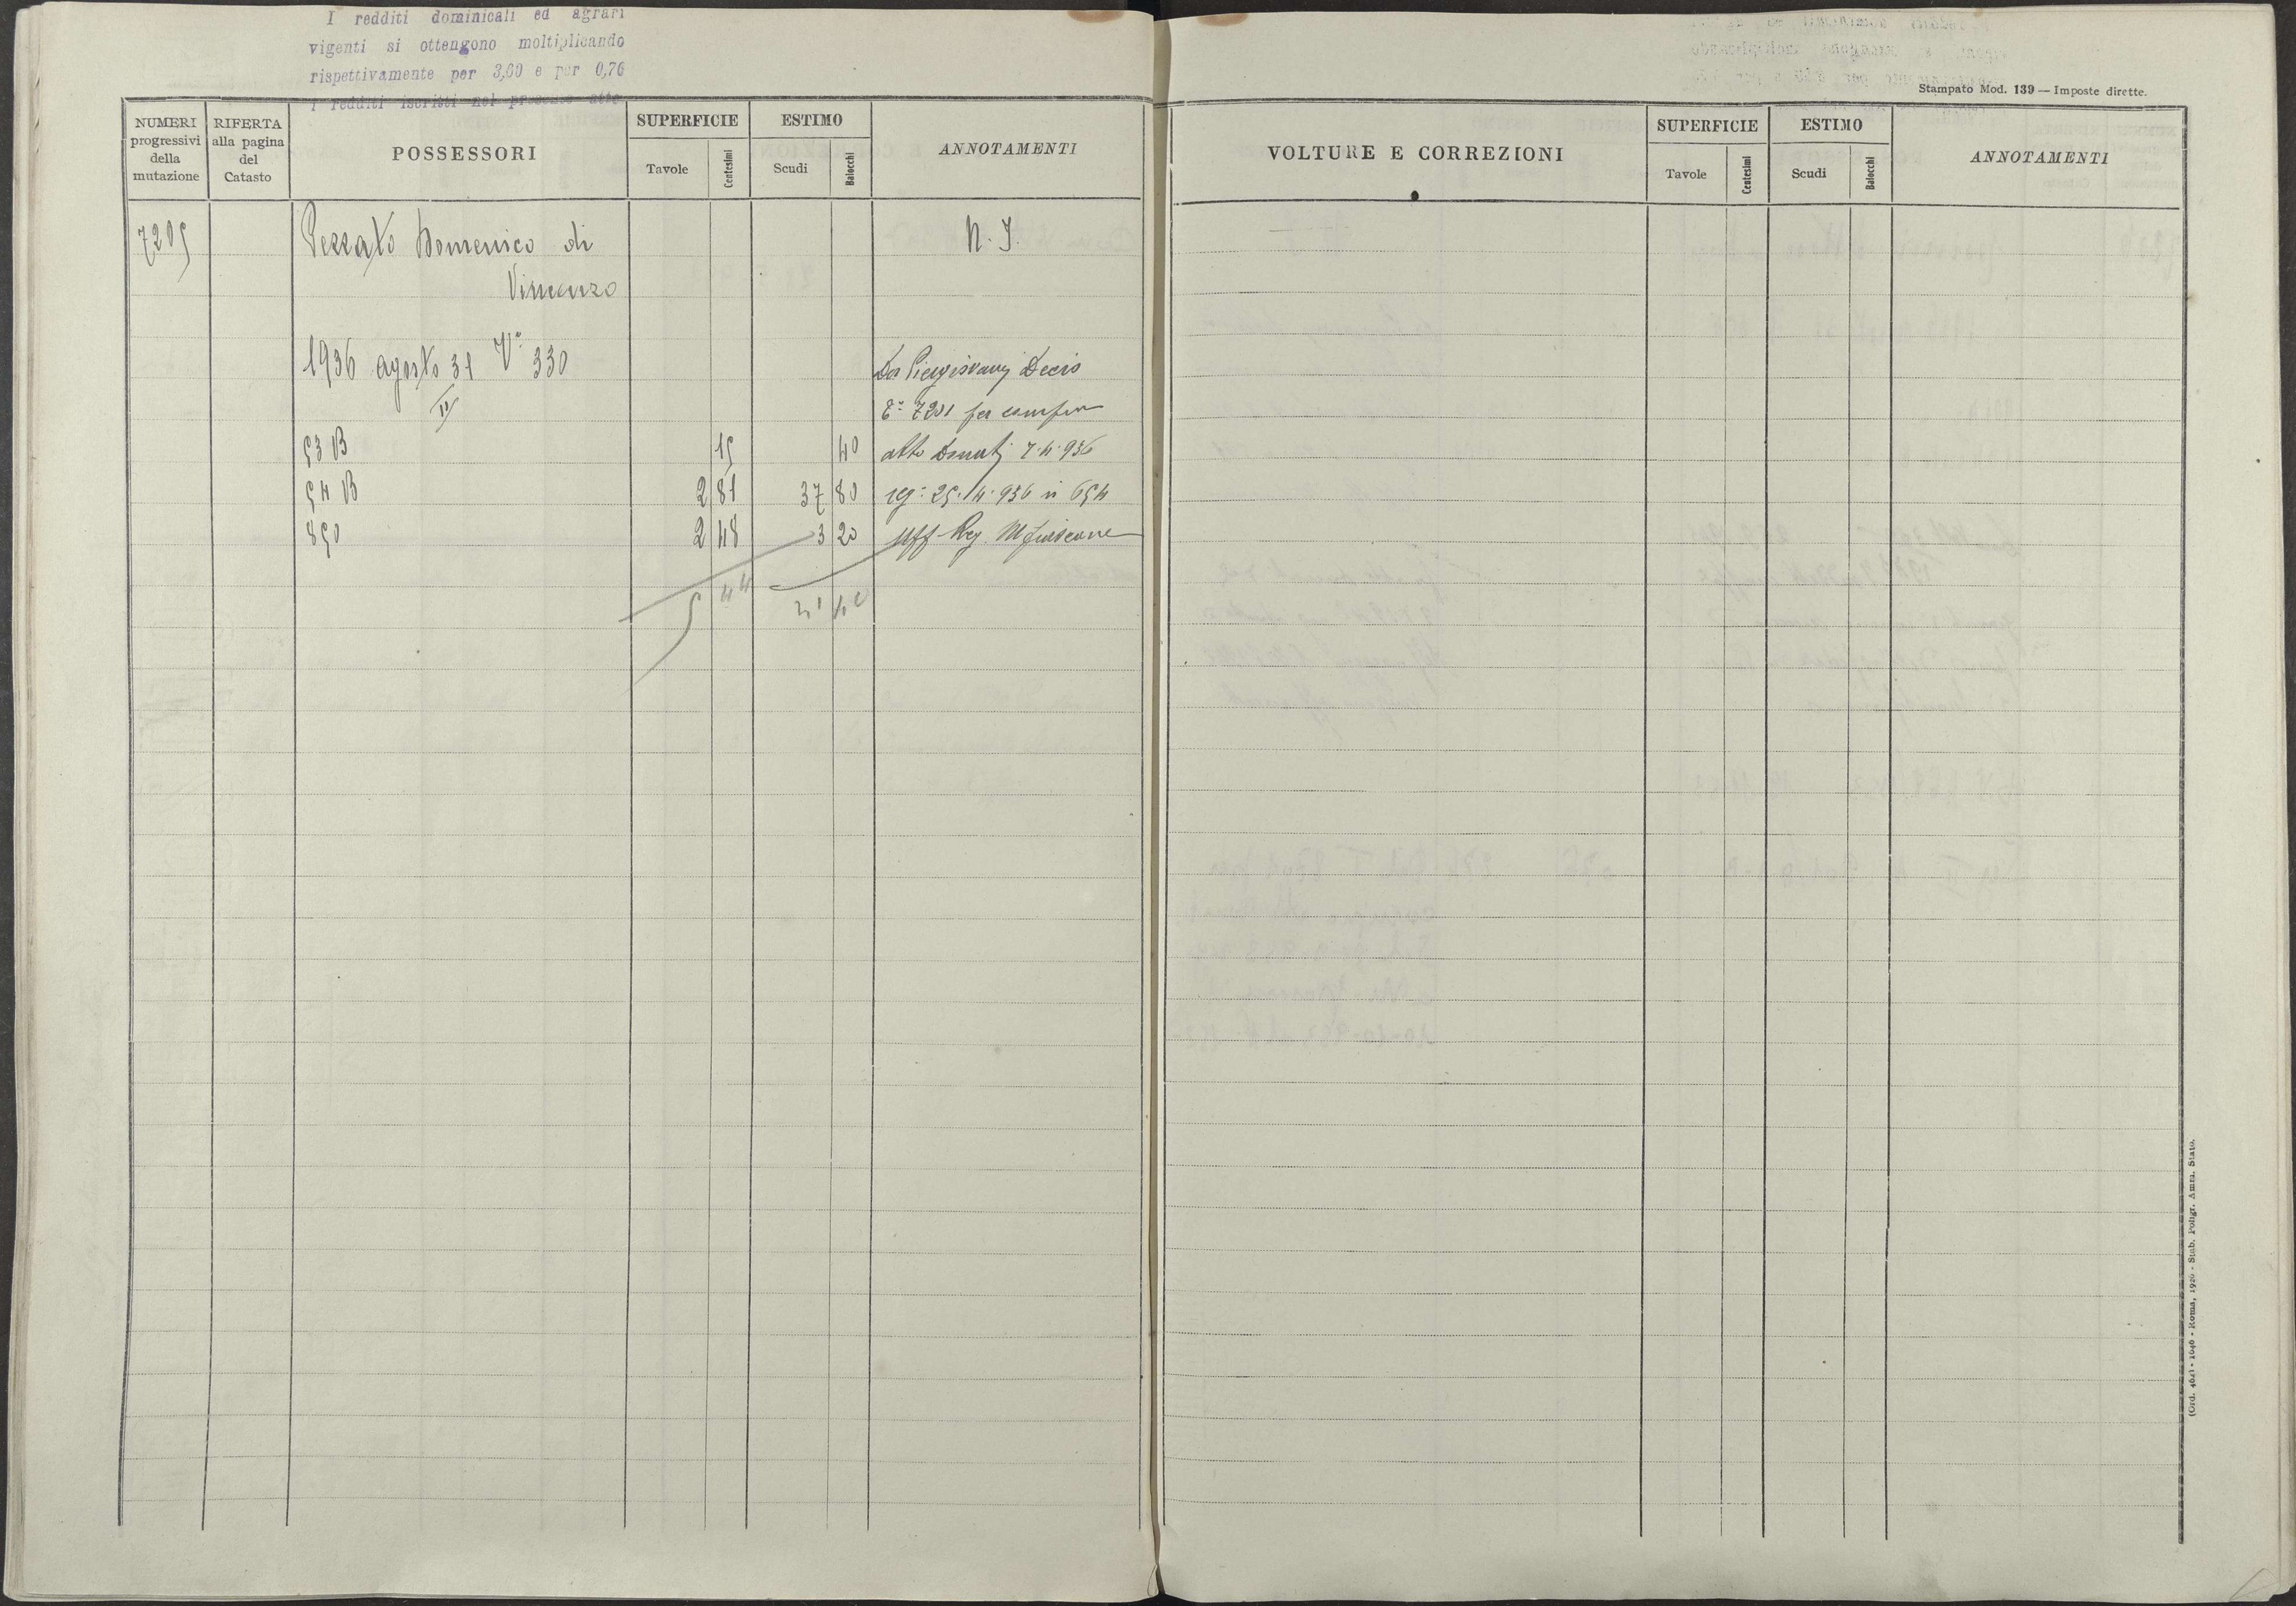 I redditi dominicali ed agrari
vigenti si ottengono moltiplicando
rispettivamente per 3,60 e per 0,76
i redditi iscritti nel presente atto
NUMERI progressivi della mutazione
RIFERTA alla pagina del Catasto
POSSESSORI
SUPERFICIE
Tavole
Centesimi
ESTIMO
Scudi
Baiocchi
ANNOTAMENTI
7205 Pezzato Domenico di N. I.
Vincenzo
1936 agosto 31 V° 330 Da Piergiovanni Decio
II 7201 per
53 B 15 40 atto Donati 7.4.936
54 B 2 81 37 80 reg: 25.4.936 n 654
850 2 48 3 20 Uff Reg.
5 44 41 40
Stampato Mod. 139 — Imposte dirette.
VOLTURE E CORREZIONI
SUPERFICIE
Tavole
Centesimi
ESTIMO
Scudi
Baiocchi
ANNOTAMENTI
Roma, 1926 - Stab. Poligr. Amm. Stato.